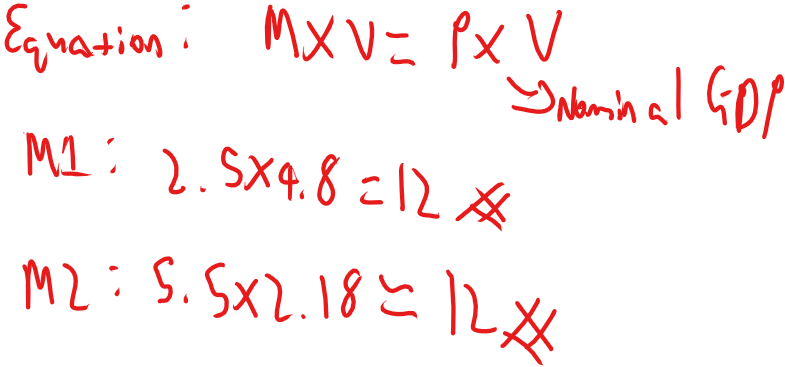 Equation: M x V = P x V
→ Nominal GDP
M1: 2.5x4.8=12
M2: 5.5x2.18=12